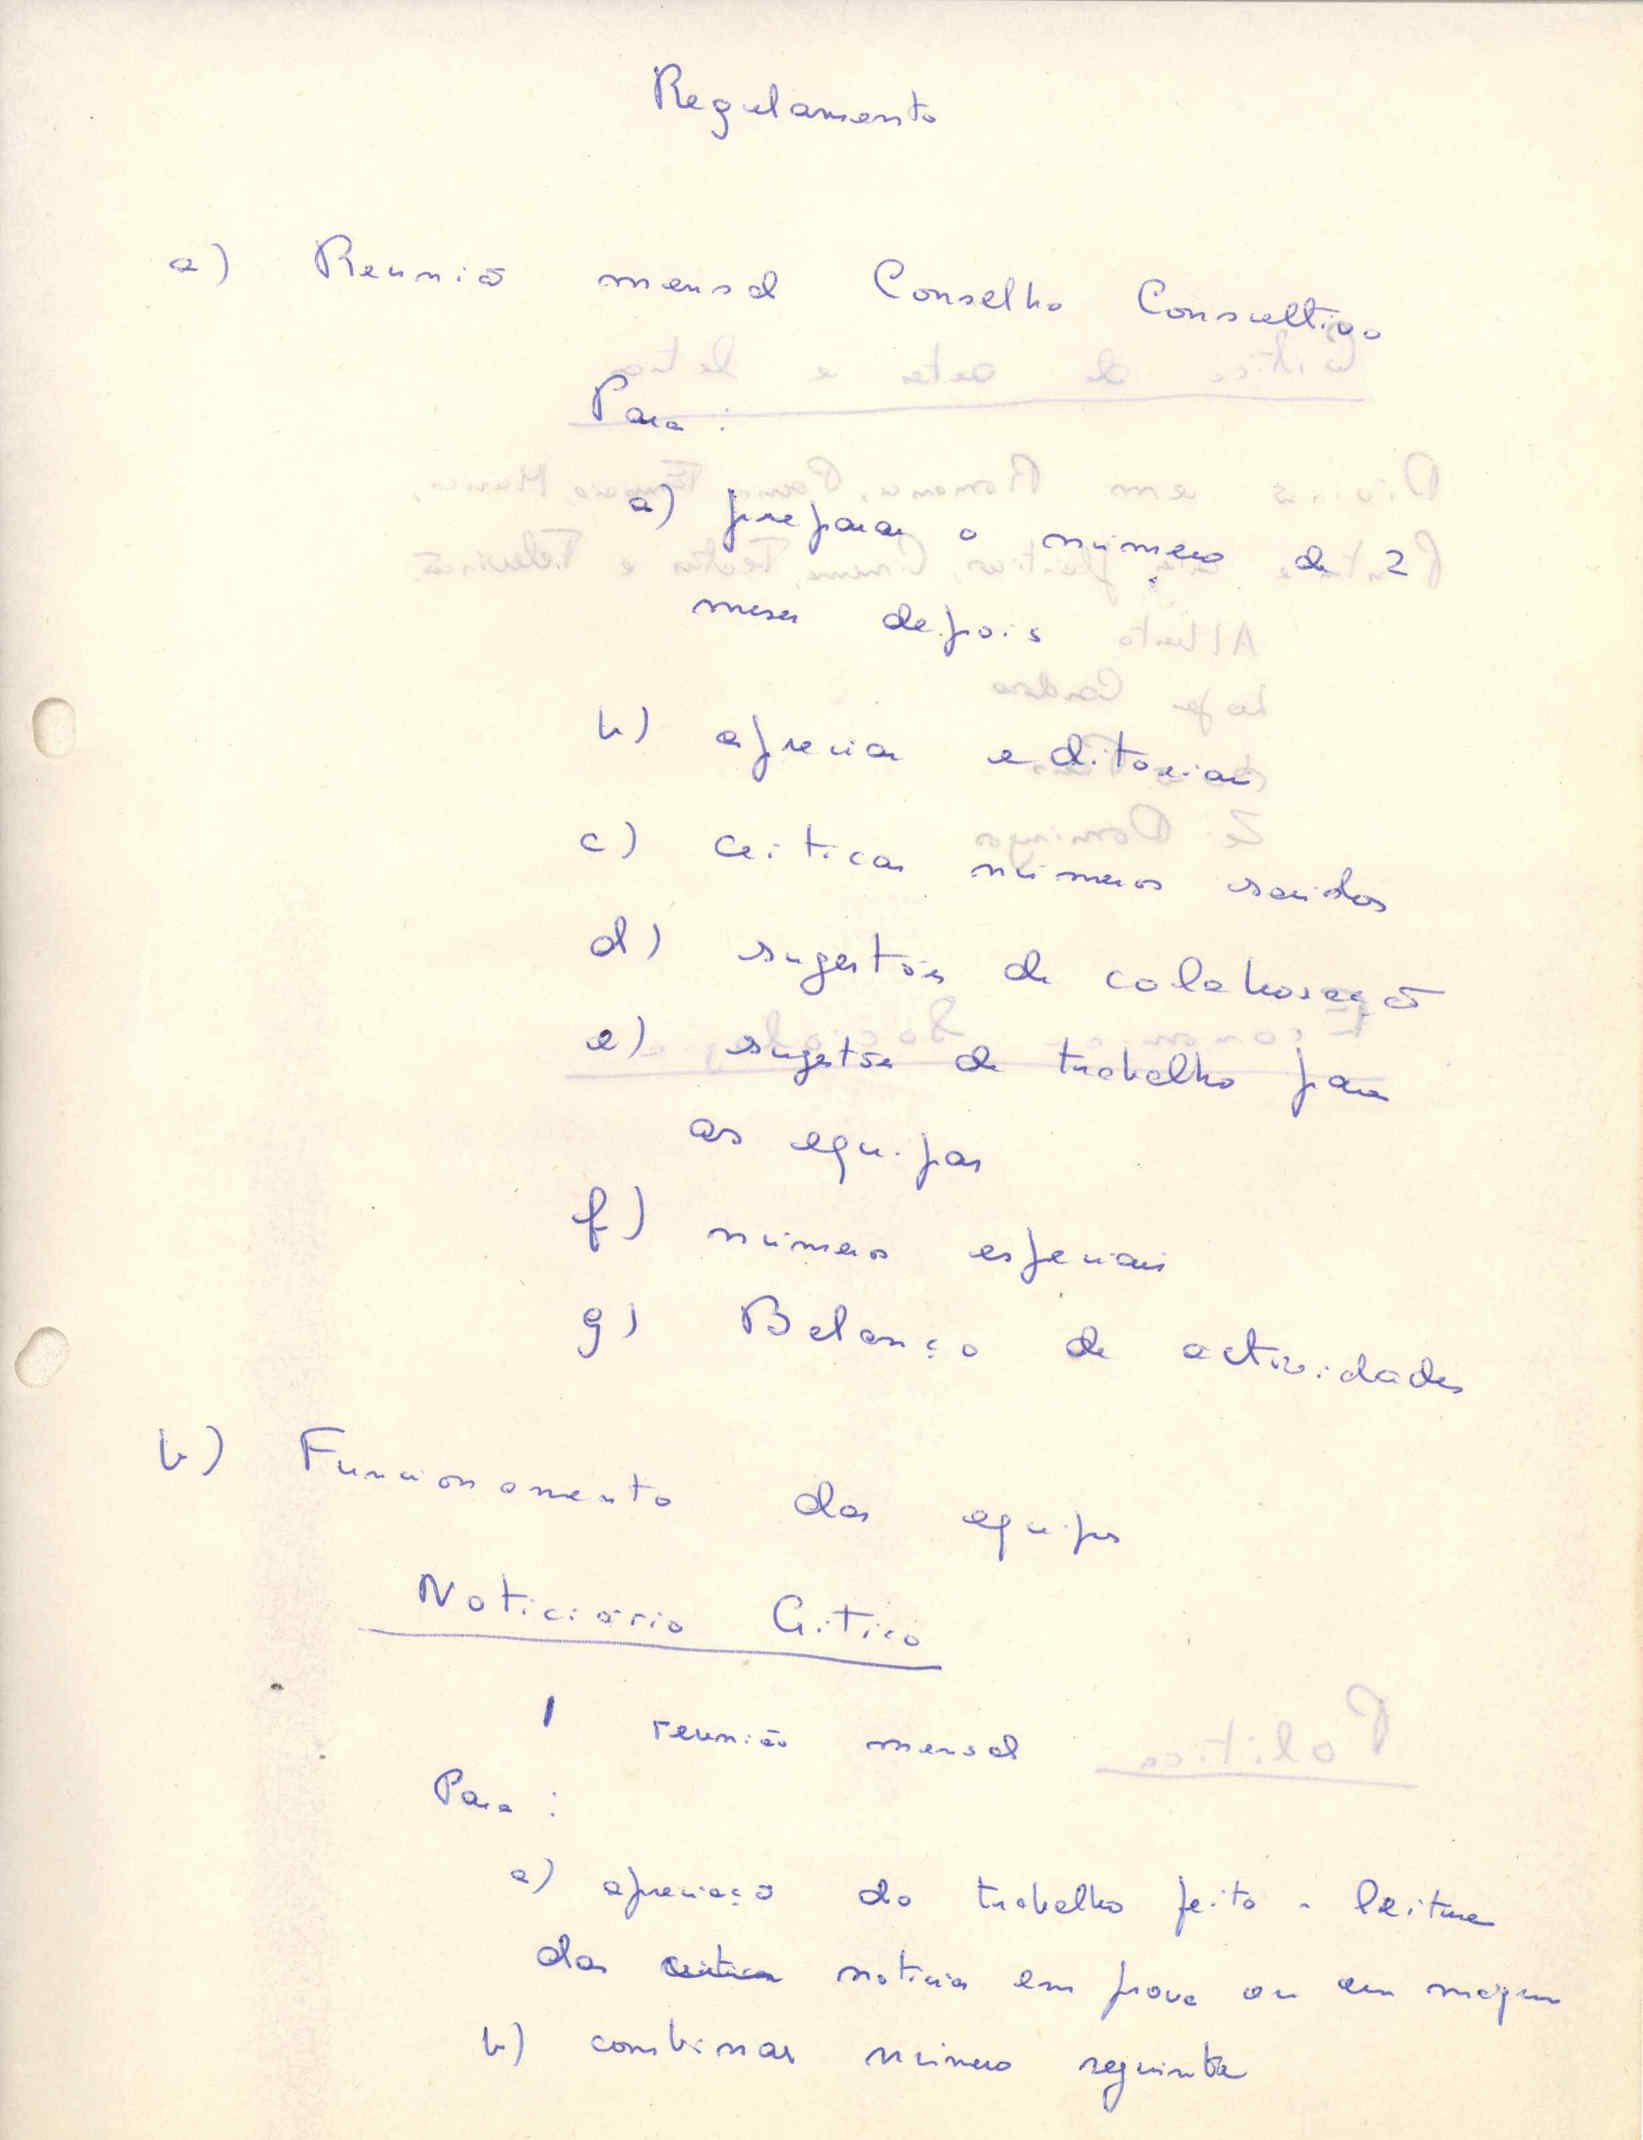 Regulamento
a) Reunião mensal Conselho Consultivo
Para:
a) preparar o número de 2
meses depois
b) apreciar editoriais
c) criticar números saídos
d) sugestões de colaboração
e) sugestões de trabalho para
as equipas
f) números especiais
g) Balanço de actividades
b) Funcionamento das equipas
Noticiário Crítico
1 reunião mensal
Para:
a) apreciação do trabalho feito - leitura
das notícias em prova ou em
b) combinar número seguinte